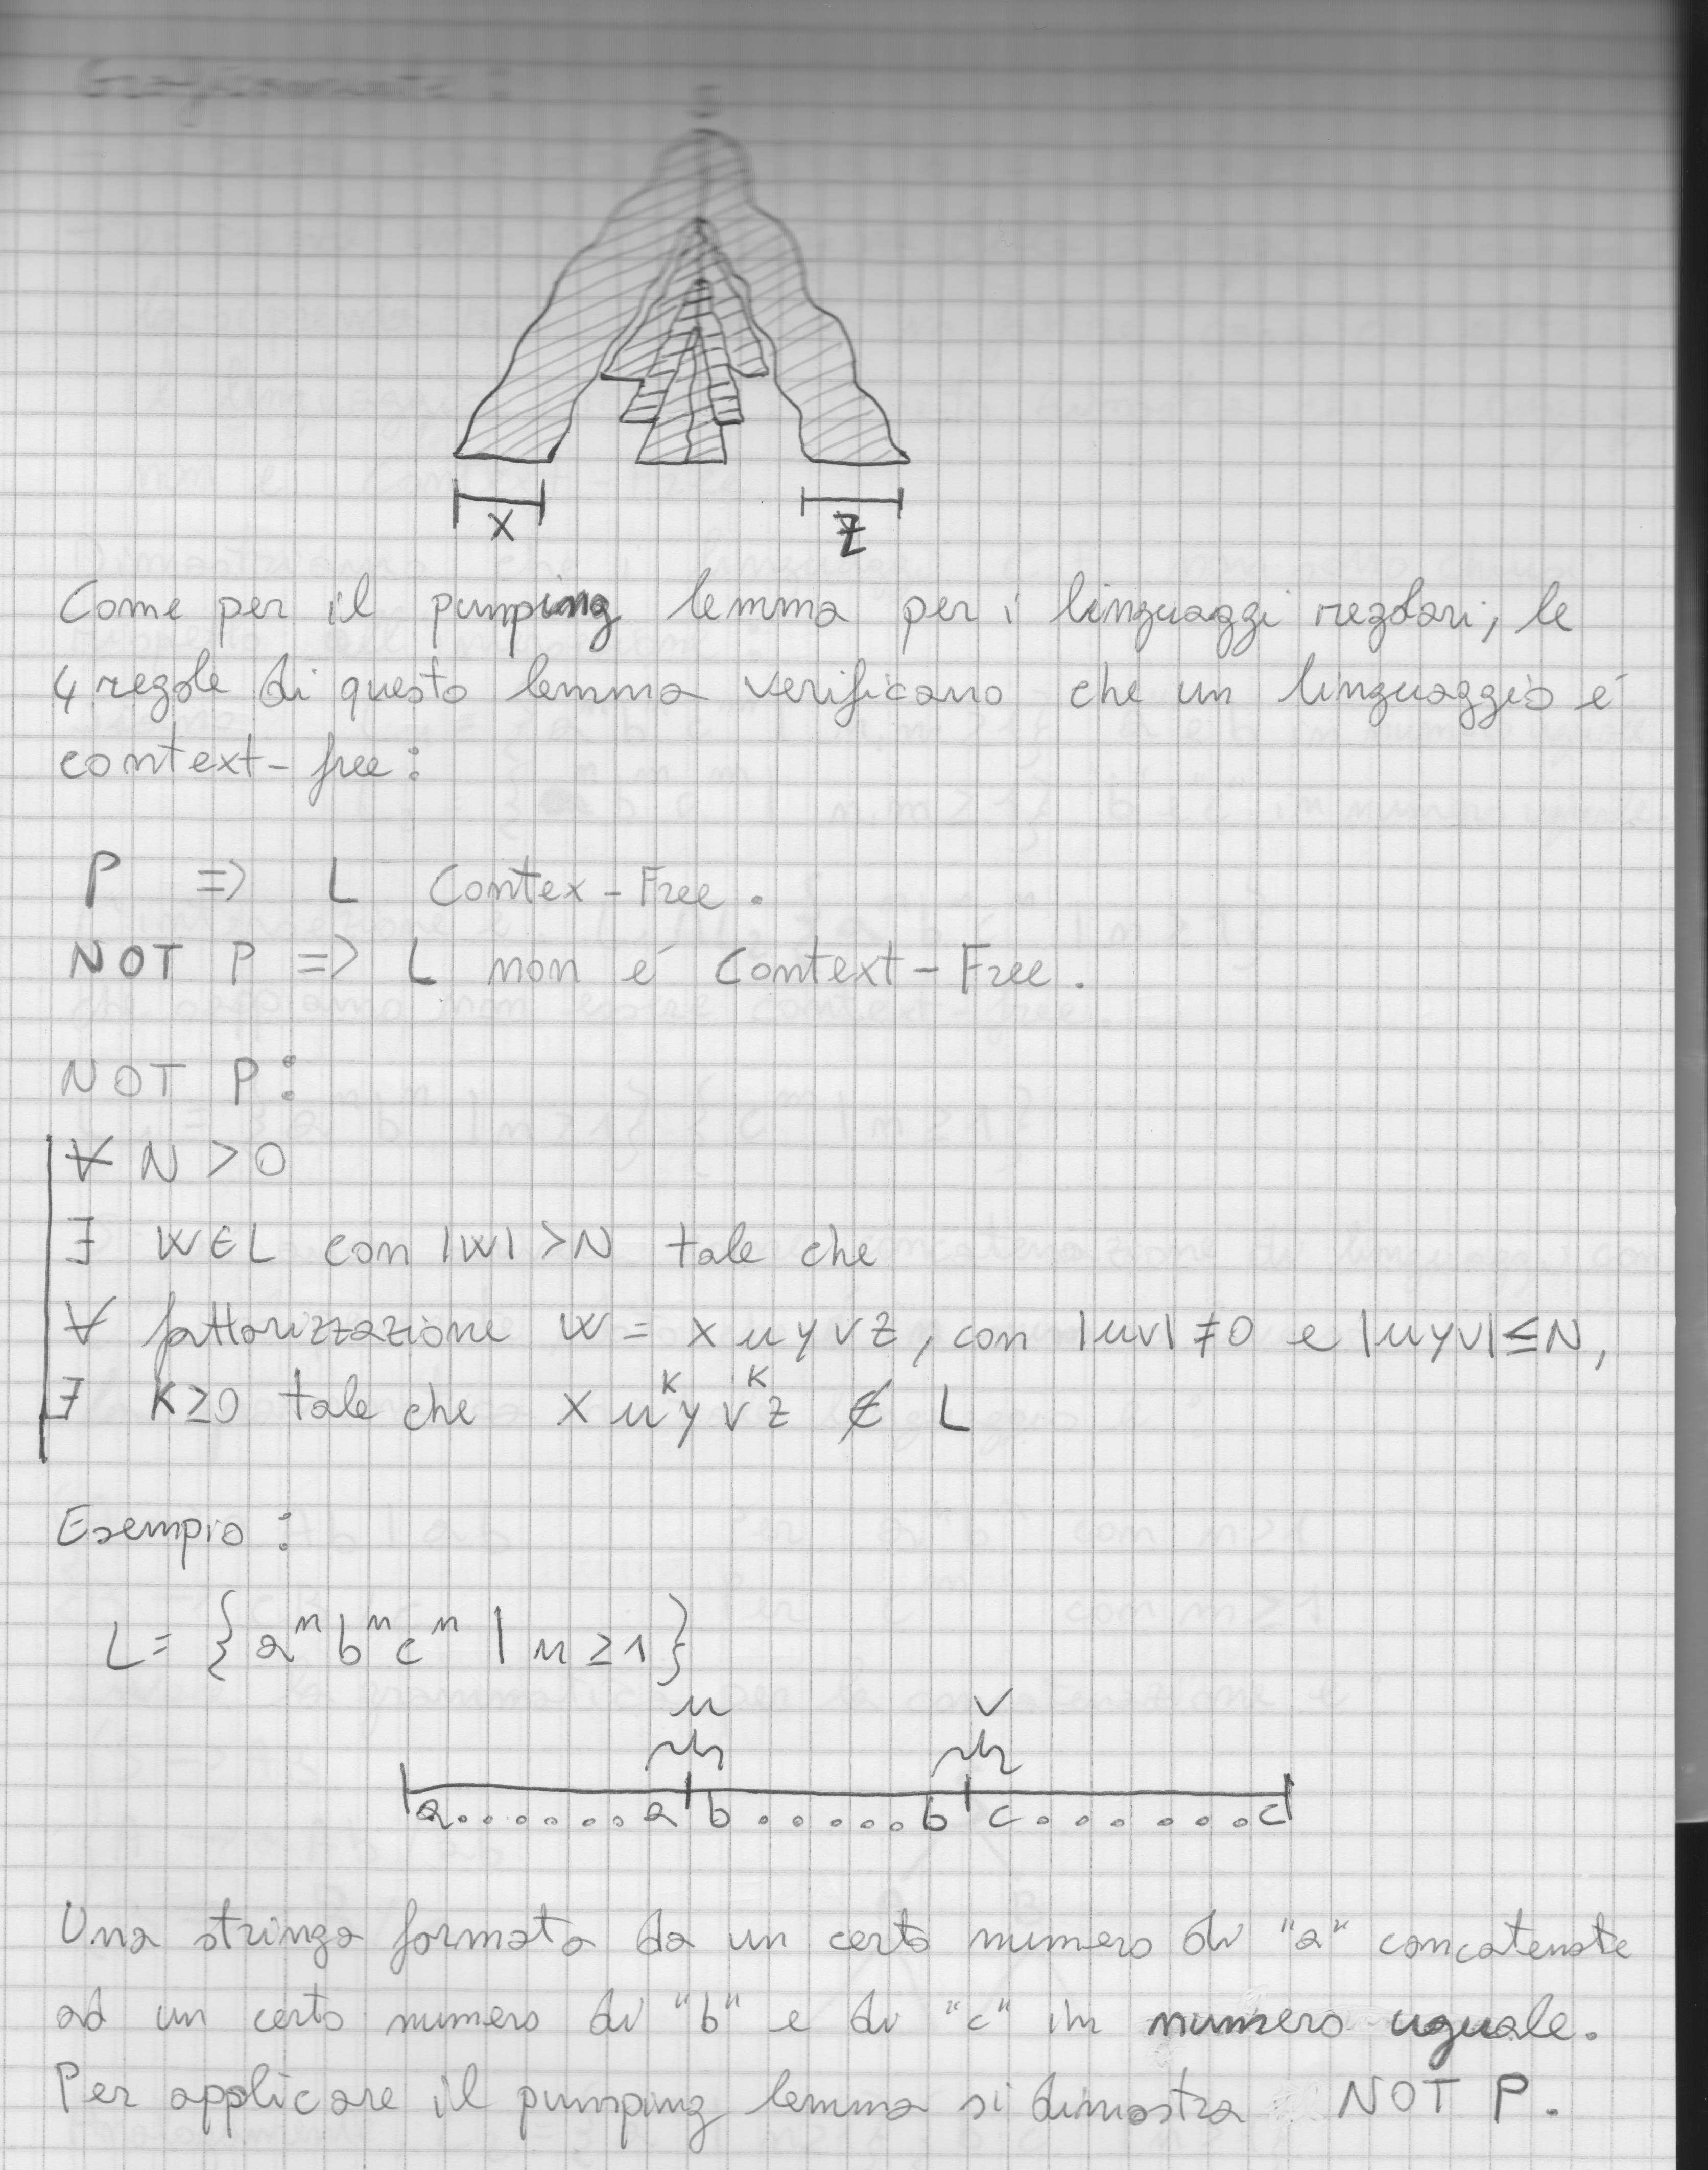 Graficamente:
S
x z
Come per il pumping lemma per i linguaggi regolari, le
4 regole di questo lemma verificano che un linguaggio é
context-free:
P => L Contex-Free.
NOT P => L non é Context-Free.
NOT P:
∀ N > 0
∃ W∈L con |W| > N tale che
∀ fattorizzazione W = x u y v z, con |uv| ≠ 0 e |uyv| ≤ N,
∃ K≥0 tale che x u^K y v^K z ∉ L
Esempio:
L = {a^n b^n c^n | n ≥ 1}
u v
a.......a b......b c.......c
Una stringa formata da un certo numero di "a" concatenate
ad un certo numero di "b" e di "c" in numero uguale.
Per applicare il pumping lemma si dimostra NOT P.